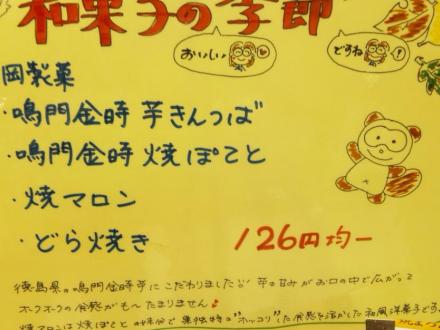 和菓子の季節
おいしい
ですね
岡製菓
・鳴門金時 芋きんつば
・鳴門金時 焼ぽてと
・焼マロン
・どら焼き 126円均一
徳島県の鳴門金時芋にこだわりました!! 芋の甘みがお口の中で広がって
ホクホクの食感がも〜たまりません
焼マロンは焼ぽてと の味分で 栗独特の"ホッコリ"した食感を活かした和風洋菓子です